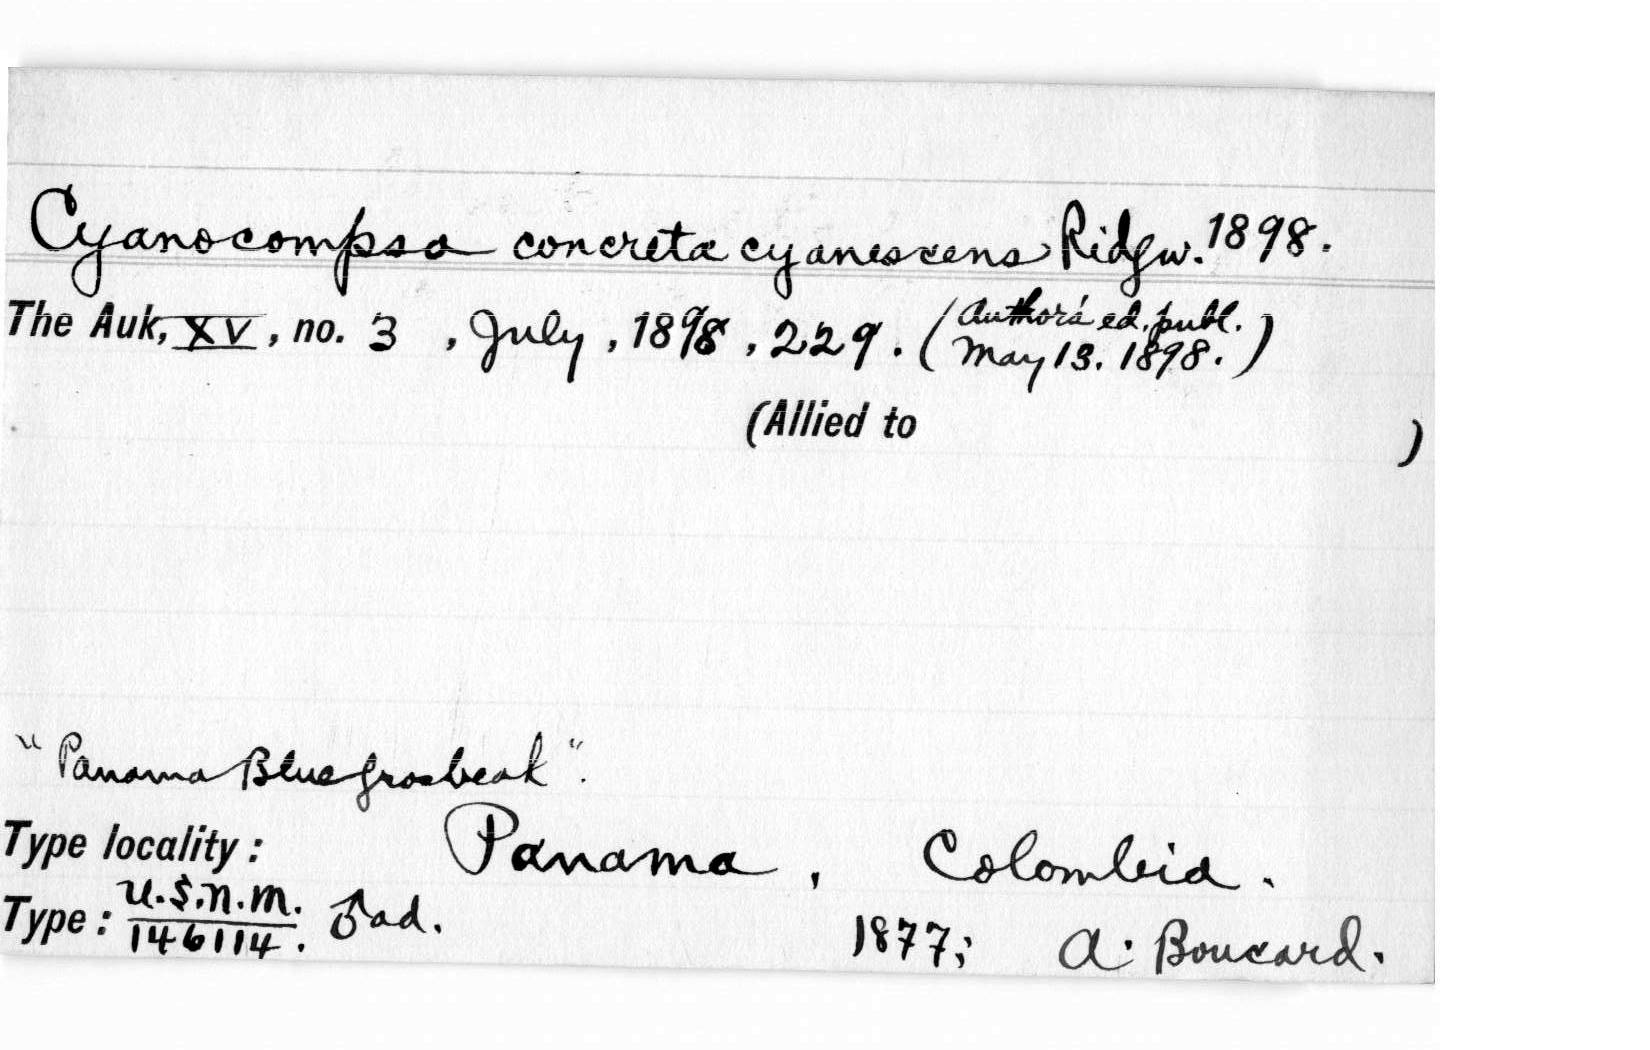 Cyanocompsa concreta cyanescens Ridgw. 1898.
The Auk, XV, no. 3, July, 1898, 229. (Author's ed. publ. May 13. 1898.)
(Allied to )
"Panama Blue Grosbeak".
Type locality: Panama, Colombia.
Type: U.S.N.M. 146114. ♂ ad. 1877; A. Boucard.